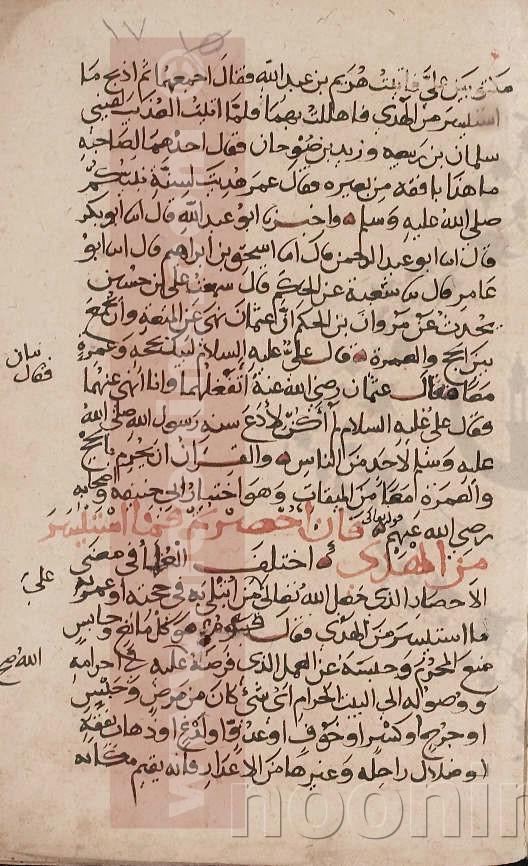 ١٧
فاتيت هريم بن عبد الله فقال اجمعهما ثم اذبح ما
استيسر من الهدي فاهللت بهما فلما اتيت العذيب لقيني
سلمان بن ربيعه وزيد بن صوحان فقال احدهما لصاحبه
ما هذا بافقه من بعيره فقال عمر هديت لسنة نبيك
صلى الله عليه وسلم واخبرنا ابو عبد الله قال اما ابو بكر
قال اما ابو عبد الرحمن قال اما اسحق بن ابراهيم قال اما ابو
عامر قال شعبة عن الحكم قال سمعت علي بن حسين
يحدث عن مروان بن الحكم ان عثمان نهى عن المتعه وان يجمع
بين الحج والعمرة فقال علي عليه السلام لبيك بحجه وعمرة
معا فقال عثمان رضي الله عنه اتفعلهما وانا انهى عنهما
فقال علي عليه السلام لم اكن لادع سنه رسول الله صلى الله
عليه وسلم لاحد من الناس والقران ان يحرم بالحج
والعمره معا من الميقات وهو اختيار ابي حنيفه واصحابه
رضي الله عنهم قوله تعالى فان احصرتم فما استيسر
من الهدي اختلف العلما في معنى
الاحصار الذي جعل الله تعالى من ابتلي به في حجته او عمرته
ما استيسر من الهدي فقال هو كل مانع وحابس
منع المحرم وحبسه عن العمل الذي فرضه عليه في احرامه
ووصوله الى البيت الحرام اي شي كان من مرض وحبس
او جرح او كسر او خوف او عدو او لدغ او ذهاب نفقه
او ضلال راحله وغيرها من الاعذار فانه يقيم مكانه
فقال
علي
الله صح
noonin